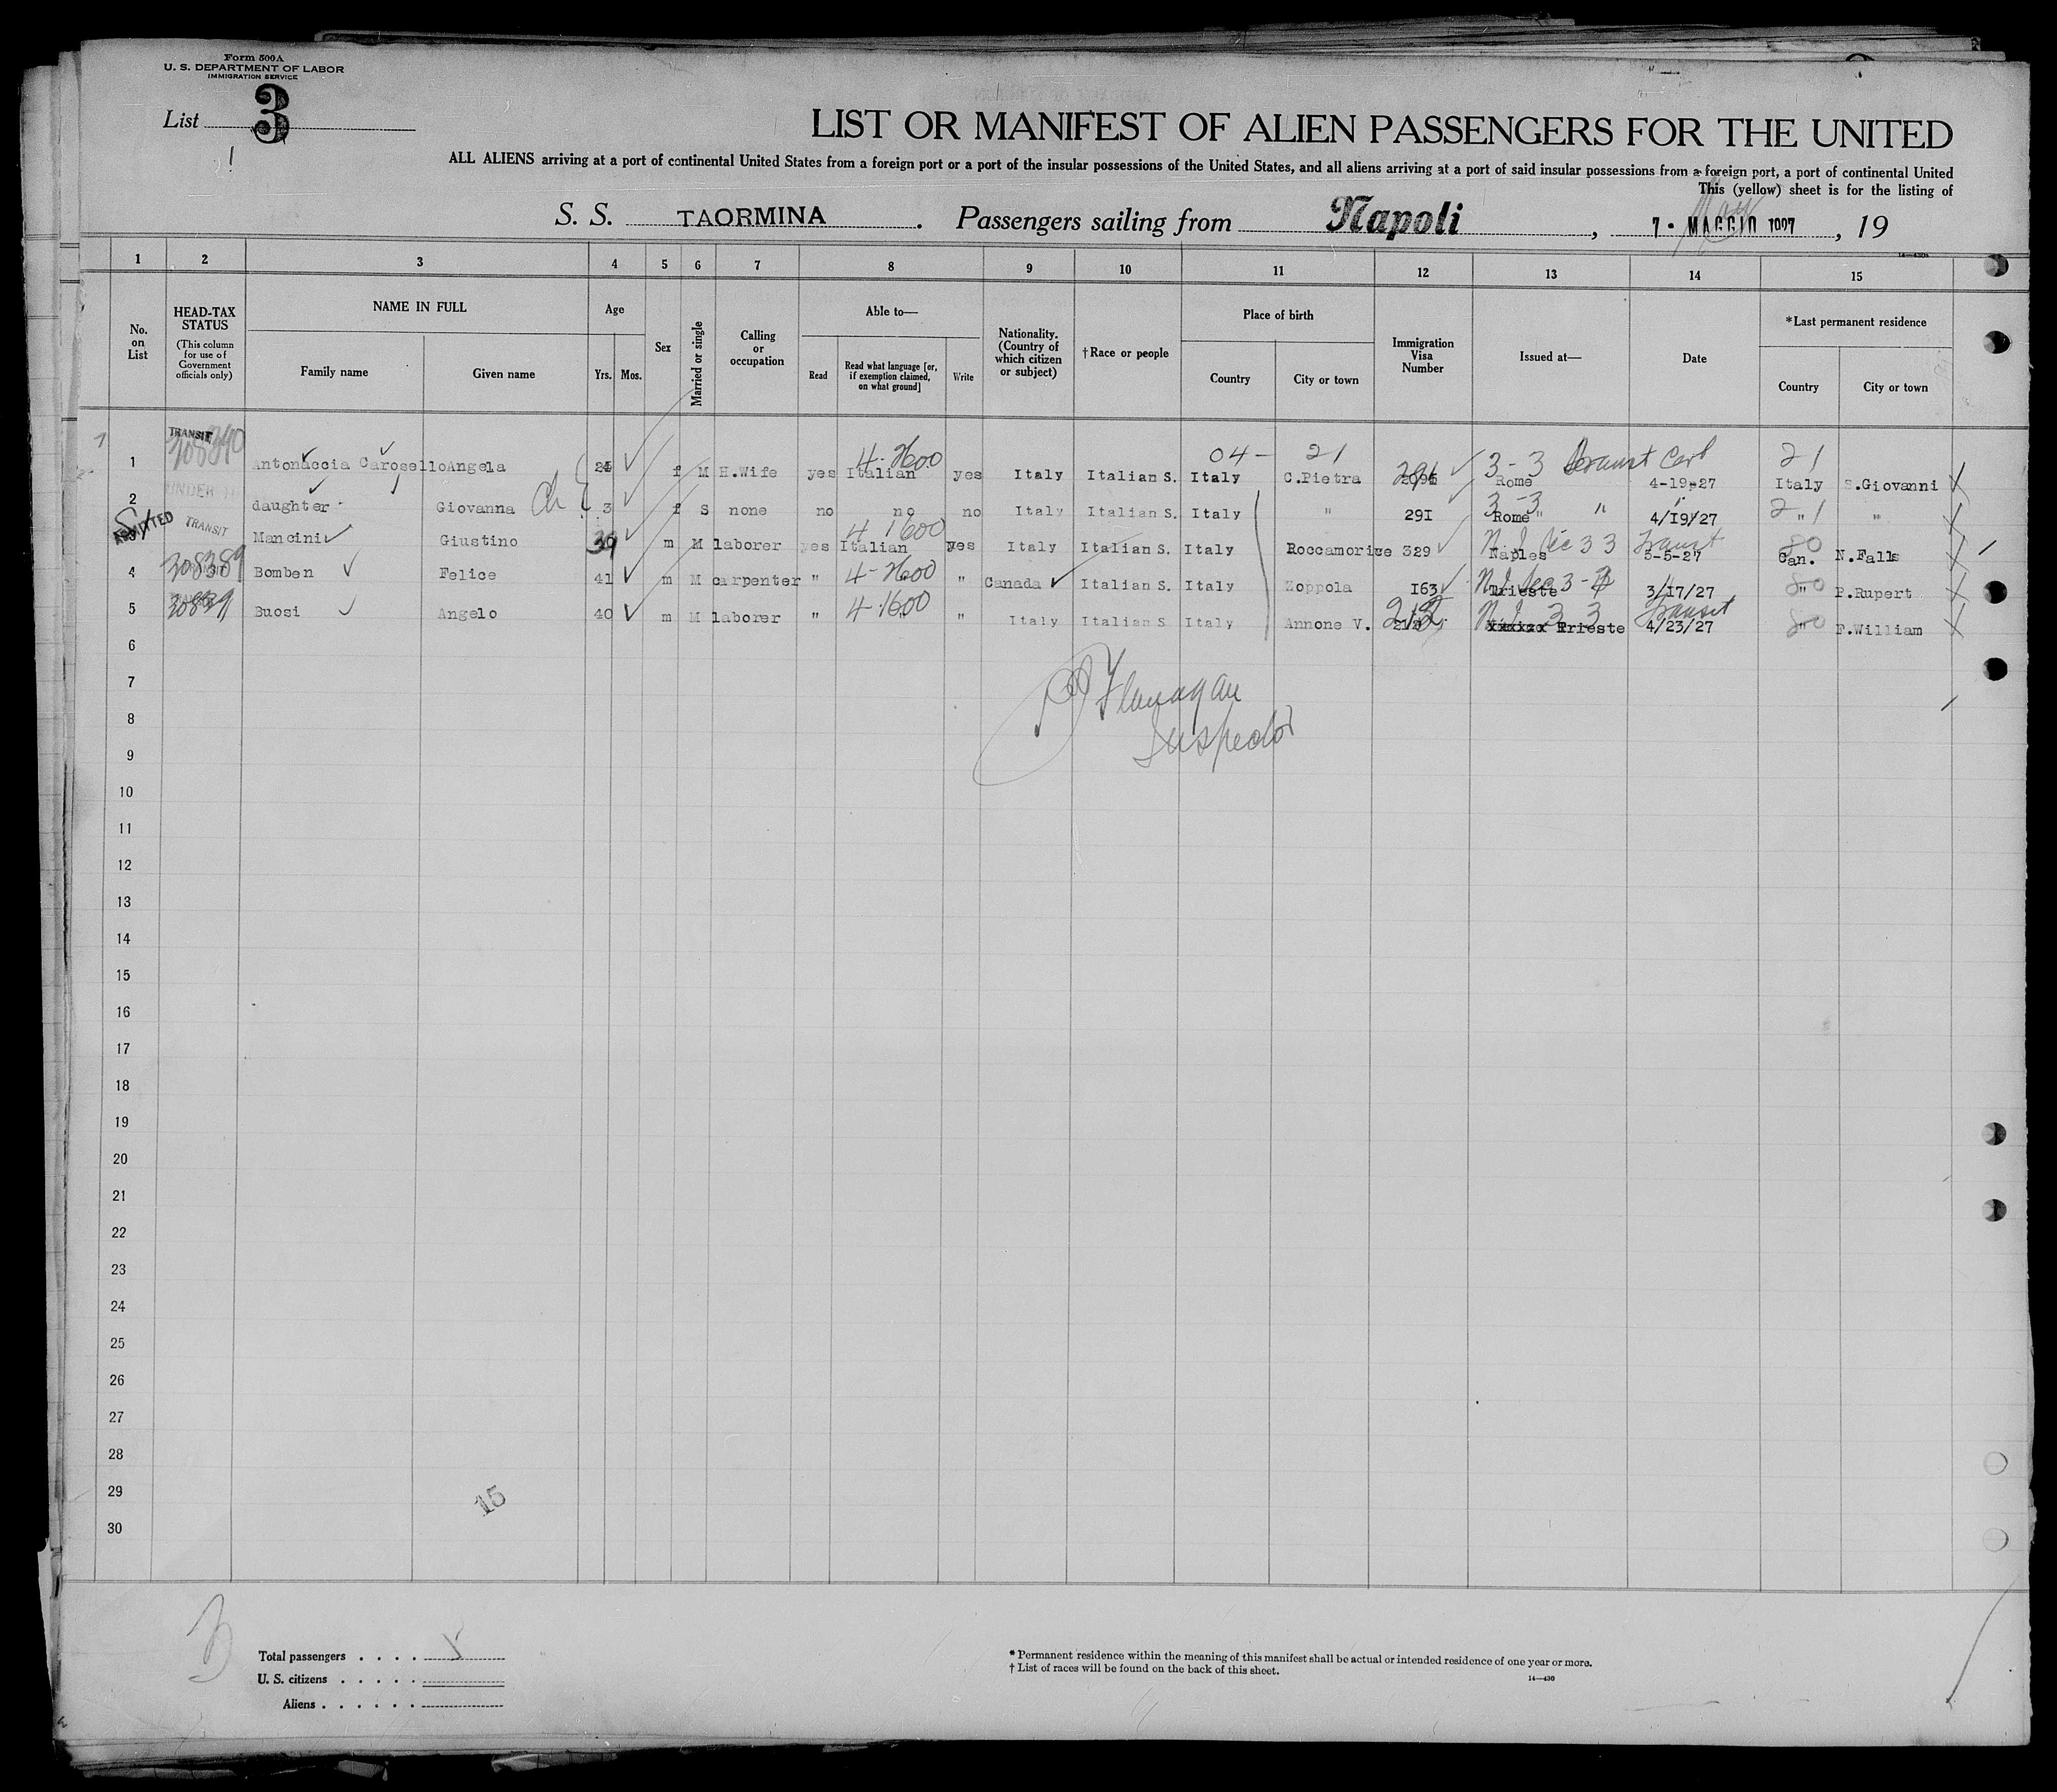 Form 500A
U. S. DEPARTMENT OF LABOR
IMMIGRATION SERVICE
List 3
LIST OR MANIFEST OF ALIEN PASSENGERS FOR THE UNITED
ALL ALIENS arriving at a port of continental United States from a foreign port or a port of the insular possessions of the United States, and all aliens arriving at a port of said insular possessions from a foreign port, a port of continental United
This (yellow) sheet is for the listing of
S. S. TAORMINA. Passengers sailing from Napoli, 7 · MAGGIO 1927, 19
14—430a
1 2 3 4 5 6 7 8 9 10 11 12 13 14 15
No. on List
HEAD-TAX STATUS
(This column for use of Government officials only)
NAME IN FULL
Family name
Given name
Age
Yrs.
Mos.
Sex
Married or single
Calling or occupation
Able to—
Read
Read what language [or, if exemption claimed, on what ground]
Write
Nationality. (Country of which citizen or subject)
†Race or people
Place of birth
Country
City or town
Immigration Visa Number
Issued at—
Date
*Last permanent residence
Country
City or town
TRANSIT 4-2600 04- 21 3-3 Transit Cert 21
1 Antonaccia Carosello Angela f M H.Wife yes Italian yes Italy Italian S. Italy C.Pietra 291 Rome 4-19-27 Italy S.Giovanni
2 daughter Giovanna Ch 3 f S none no no no Italy Italian S. Italy " 291 3-3 Rome " " 4/19/27 21 " "
ADMITTED TRANSIT 4 1600
3 Mancini Giustino 39 m M laborer yes Italian yes Italy Italian S. Italy Roccamorice 329 3 3 Naples Transit 5-5-27 80 Can. N.Falls
208389
4 Bomben Felice 41 m M carpenter " 4-2600 " Canada Italian S. Italy Zoppola I63 Trieste 3/17/27 80 " P.Rupert
5 Buosi Angelo 40 m M laborer " 4-1600 " Italy Italian S Italy Annone V. 212 3 3 xxxxxx Trieste Transit 4/23/27 80 " F.William
6
Flanagan
7
Inspector
8
9
10
11
12
13
14
15
16
17
18
19
20
21
22
23
24
25
26
27
28
29
15
30
Total passengers
U. S. citizens
Aliens
* Permanent residence within the meaning of this manifest shall be actual or intended residence of one year or more.
† List of races will be found on the back of this sheet.
14—430